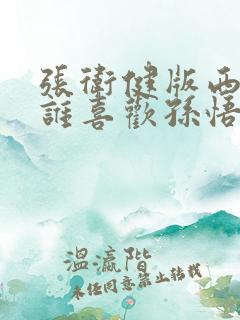 張衛健版西
誰喜歡孫悟
溫瀛階
未经同意禁止转载